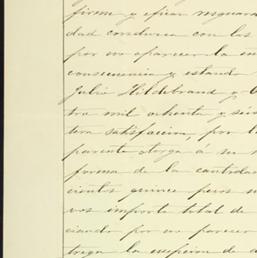 firme y eficaz resguar
dad conducea con los
por no aparecer la en
consecuencia y estando
Julio Hildebrand y C
tra mil ochenta y séis
tera satisfaccion, por l
parente otorga á su
forma de la cantidad
cientos quince pesos n
vos importe total de
ciando por no parecer
trega la excepcion de d